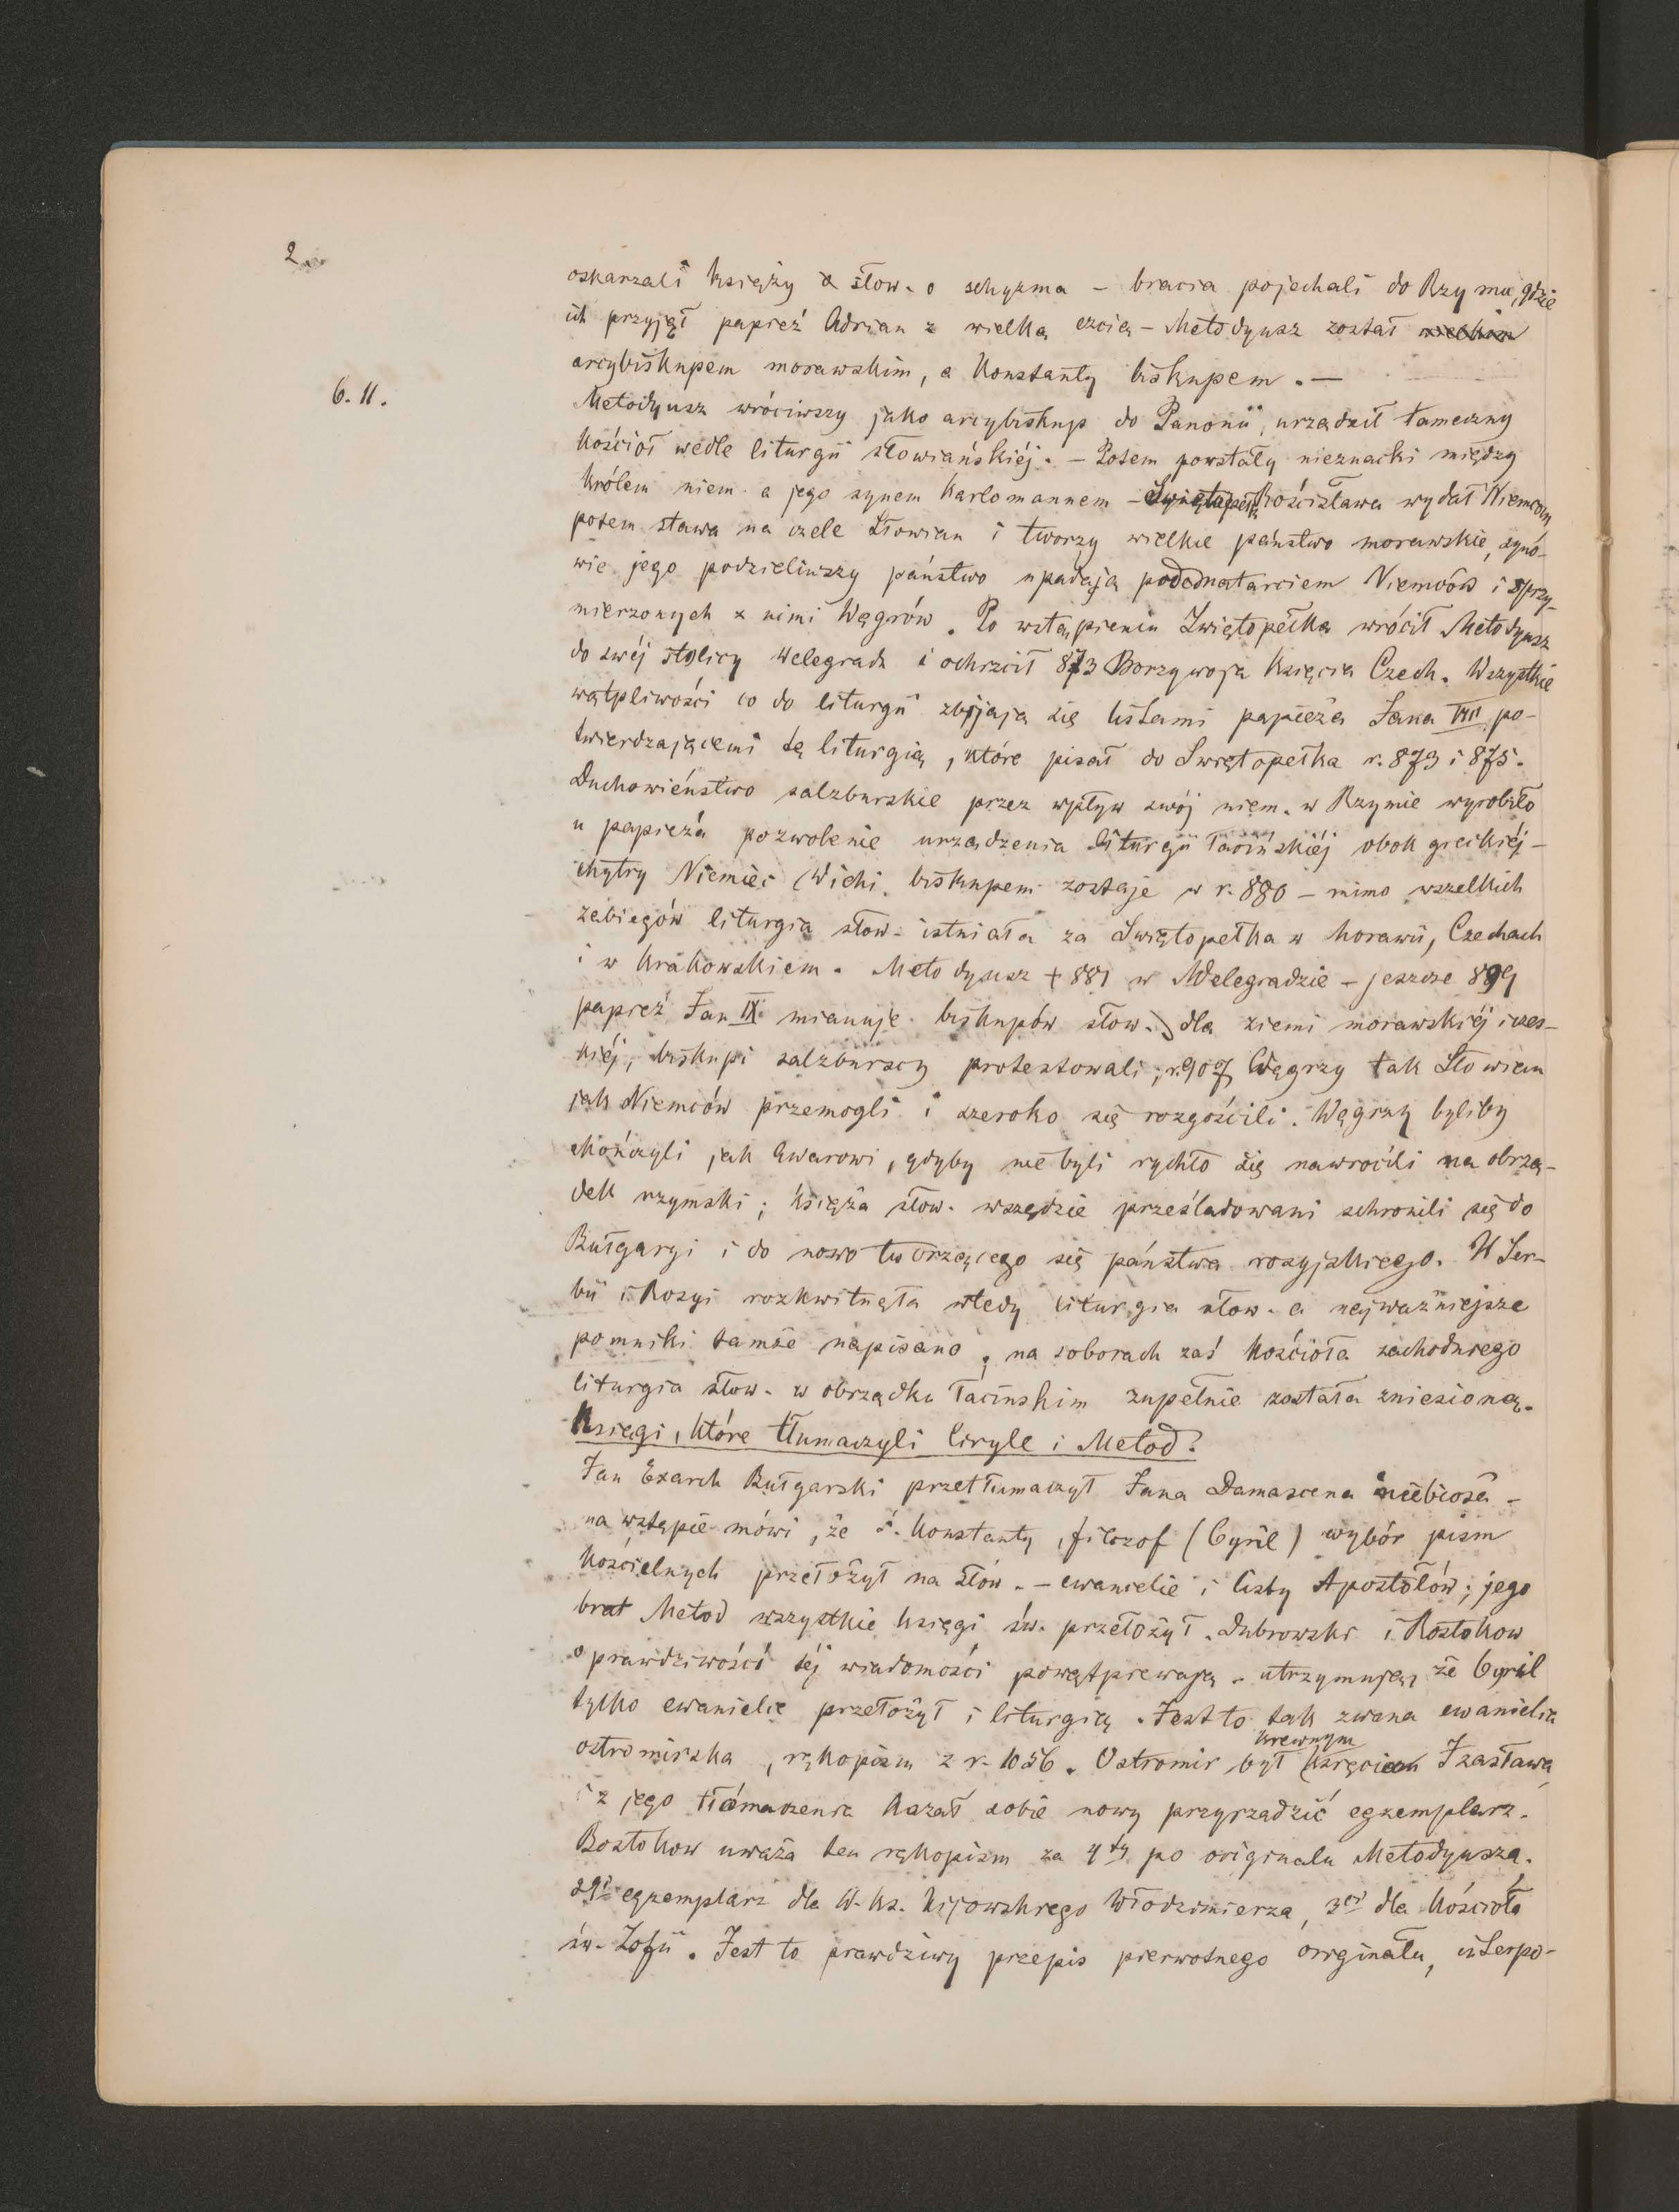 2.
oskarzali księży słow. o schyzma – bracia pojechali do Rzymu, gdzie
ich przyjął papież Adrian z wielką czcią – Metodyusz został
arcybiskupem morawskim, a Konstanty biskupem. –
6. 11.
Metodyusz wróciwszy jako arcybiskup do Panonii, urządził tameczny
kościoł wedle liturgii słowiańskiéj. – Potem powstały nieznacki między
królem niem. a jego synem Karlomannem – Świętopełk Rościsława wydał Niemcom
potem stawa na czele Słowian i tworzy wielkie państwo morawskie, syno-
wie jego podzieliwszy państwo upadają pod natarciem Niemców i sprzy-
mierzonych z nimi Węgrów. Po wstąpieniu Świętopełka wrócił Metodyusz
do swéj stolicy Welegradu i ochrzcił 873 Borzywoja Księcia Czech. Wszystkie
wątpliwości co do liturgii zbijają się listami papieża Jana VIII po-
twierdzającemi tę liturgią, które pisał do Swiętopełka r. 873 i 875.
Duchowieństwo salzburskie przez wpływ swój niem. w Rzymie wyrobiło
u papieża pozwolenie urządzenia liturgii łacińskiéj obok greckiéj –
chytry Niemiec Wichi. biskupem zostaje w r. 880 – mimo wszelkich
zabiegów liturgia słow. istniała za Swiętopełka w Morawii, Czechach
i w Krakowskiem. Metodyusz + 881 w Welegradzie – jeszcze 899
papież Jan IX mianuje biskupów słow. dla ziemi morawskiéj i czes-
kiéj, biskupi salzburscy protestowali; r. 907 Węgrzy tak Słowian
jak Niemców przemogli i szeroko się rozgościli. Węgrzy byliby
skończyli jak Awarowi, gdyby nie byli rychło się nawrócili na obrzą-
dek rzymski; księża słow. wszędzie prześladowani schronili się do
Bułgaryi i do nowo tworzącego się państwa rosyjskiego. W Ser-
bii i Rosyi rozkwitnęła wtedy liturgia słow. a najważniejsze
pomniki tamże napisano; na soborach zaś kościoła zachodniego
liturgia słow. w obrządku łacińskim zupełnie została zniesioną.
Księgi, które tłumaczyli Ciryle i Metod?
Jan Exarch Bułgarski przetłumaczył Jana Damascena niebiosa –
na wstępie mówi, że ś. Konstanty, filozof (Cyril) wybór pism
kościelnych przełożył na słow. – ewanielie i listy Apostołów; jego
brat Metod wszystkie księgi św. przełożył. Dubrowski i Rostokow
o prawdziwości téj wiadomości powątpiewają. utrzymując, że Cyril
tylko ewanielie przełożył i liturgią. Jest to tak zwana ewanielia
ostromirska, rękopism z r. 1056. Ostromir był krewnym Izasława
i z jego tłómaczenia kazał sobie nowy przyrządzić egzemplarz.
Bostokow uważa ten rękopism za 4ty po originalu Metodyusza.
2gi egzemplarz dla W. Ks. Kijowskiego Włodzimierza, 3ci dla kościoła
św. Zofii. Jest to prawdziwy przepis pierwotnego originału,